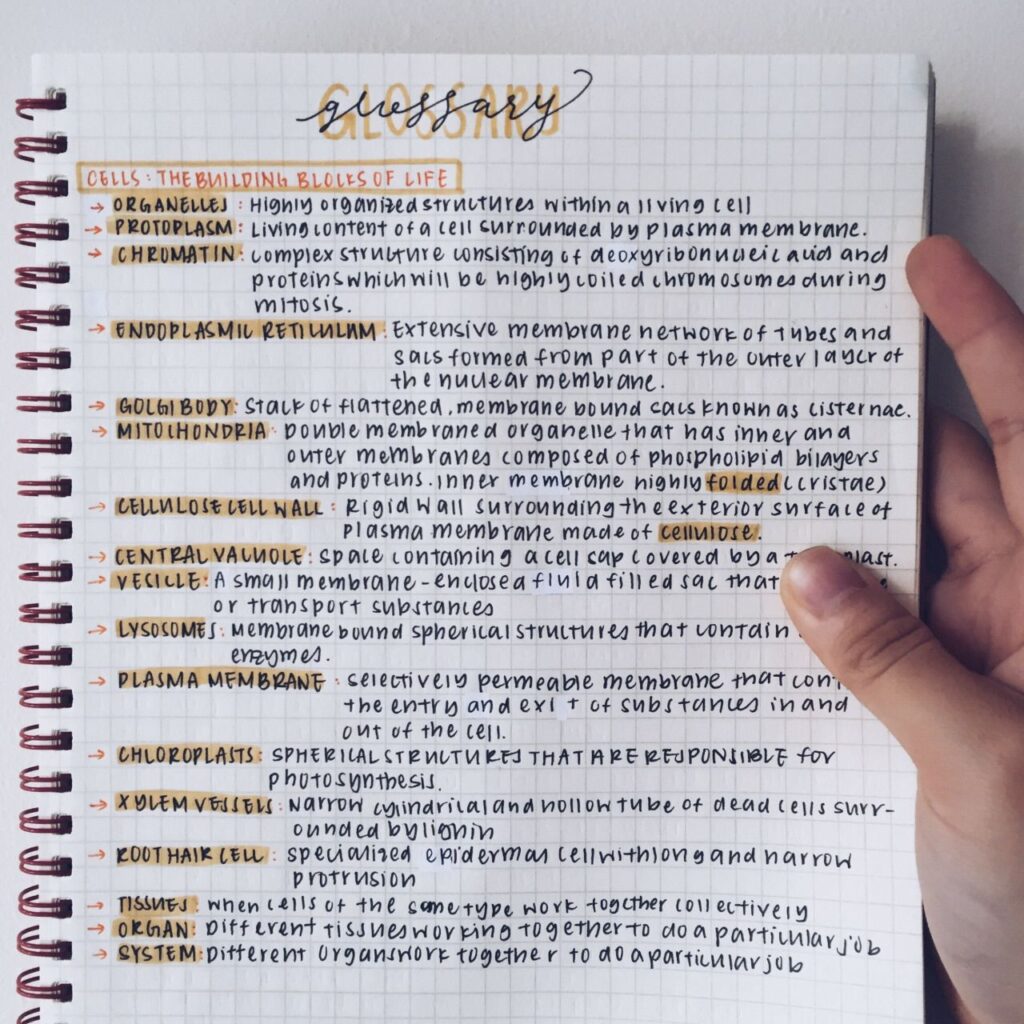 glossary
GLOSSARY
CELLS: THE BUILDING BLOCKS OF LIFE
→ ORGANELLES: Highly organized structures within a living cell
→ PROTOPLASM: Living content of a cell surrounded by plasma membrane.
→ CHROMATIN: complex structure consisting of deoxyribonucleic acid and
proteins which will be highly coiled chromosomes during
mitosis.
→ ENDOPLASMIC RETICULUM: Extensive membrane network of tubes and
sacs formed from part of the outer layer of
the nuclear membrane.
→ GOLGI BODY: Stack of flattened, membrane bound sacs known as cisternae.
→ MITOCHONDRIA: Double membraned organelle that has inner and
outer membranes composed of phospholipid bilayers
and proteins. inner membrane highly folded (cristae)
→ CELLULOSE CELL WALL: Rigid wall surrounding the exterior surface of
plasma membrane made of cellulose.
→ CENTRAL VACUOLE: space containing a cell sap covered by a
→ VESICLE: A small membrane-enclosed fluid filled sac that
or transport substances
→ LYSOSOMES: Membrane bound spherical structures that contain
enzymes.
→ PLASMA MEMBRANE: selectively permeable membrane that
the entry and exit of substances in and
out of the cell.
→ CHLOROPLASTS: SPHERICAL STRUCTURES THAT ARE RESPONSIBLE for
photosynthesis.
→ XYLEM VESSELS: Narrow cylindrical and hollow tube of dead cells surr-
ounded by lignin
→ ROOT HAIR CELL: specialized epidermal cell with long and narrow
protrusion
→ TISSUES: when cells of the same type work together collectively
→ ORGAN: Different tissues working together to do a particular job
→ SYSTEM: Different organs work together to do a particular job